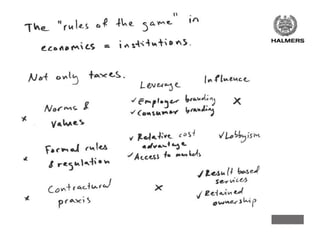 The "rules of the game" in
economics = institutions.
HALMERS
Not only taxes.
Leverage Influence
* Norms & Values
✓ Employer branding
✓ Consumer branding
X
* Formal rules & regulation
✓ Relative cost advantage
✓ Access to markets
✓ Lobbyism
* Contractural praxis
X
✓ Result based services
✓ Retained ownership